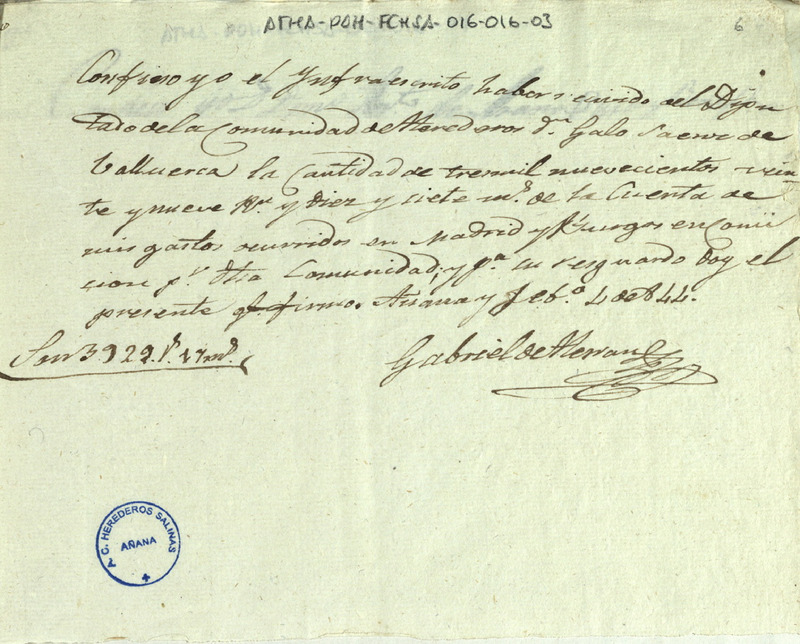 ATHA-DAH-FCHSA-016-016-03
6
Confieso yo el Ynfraescrito haber recivido del Dipu
tado de la Comunidad de Herederos dn. Galo Saenz de
Valluerca la Cantidad de tresmil nuevecientos vein
te y nueve rr. y Diez y siete ms. de la Cuenta de
mis gastos ocurridos en Madrid y Burgos en Comi
cion pr. dha Comunidad; y pa. su resguardo doy el
presente qe. firmo. Añana y Feb.o 4 de 844.
Son 3929 r.s 17 ms.
Gabriel de Herran
C. HEREDEROS SALINAS
AÑANA